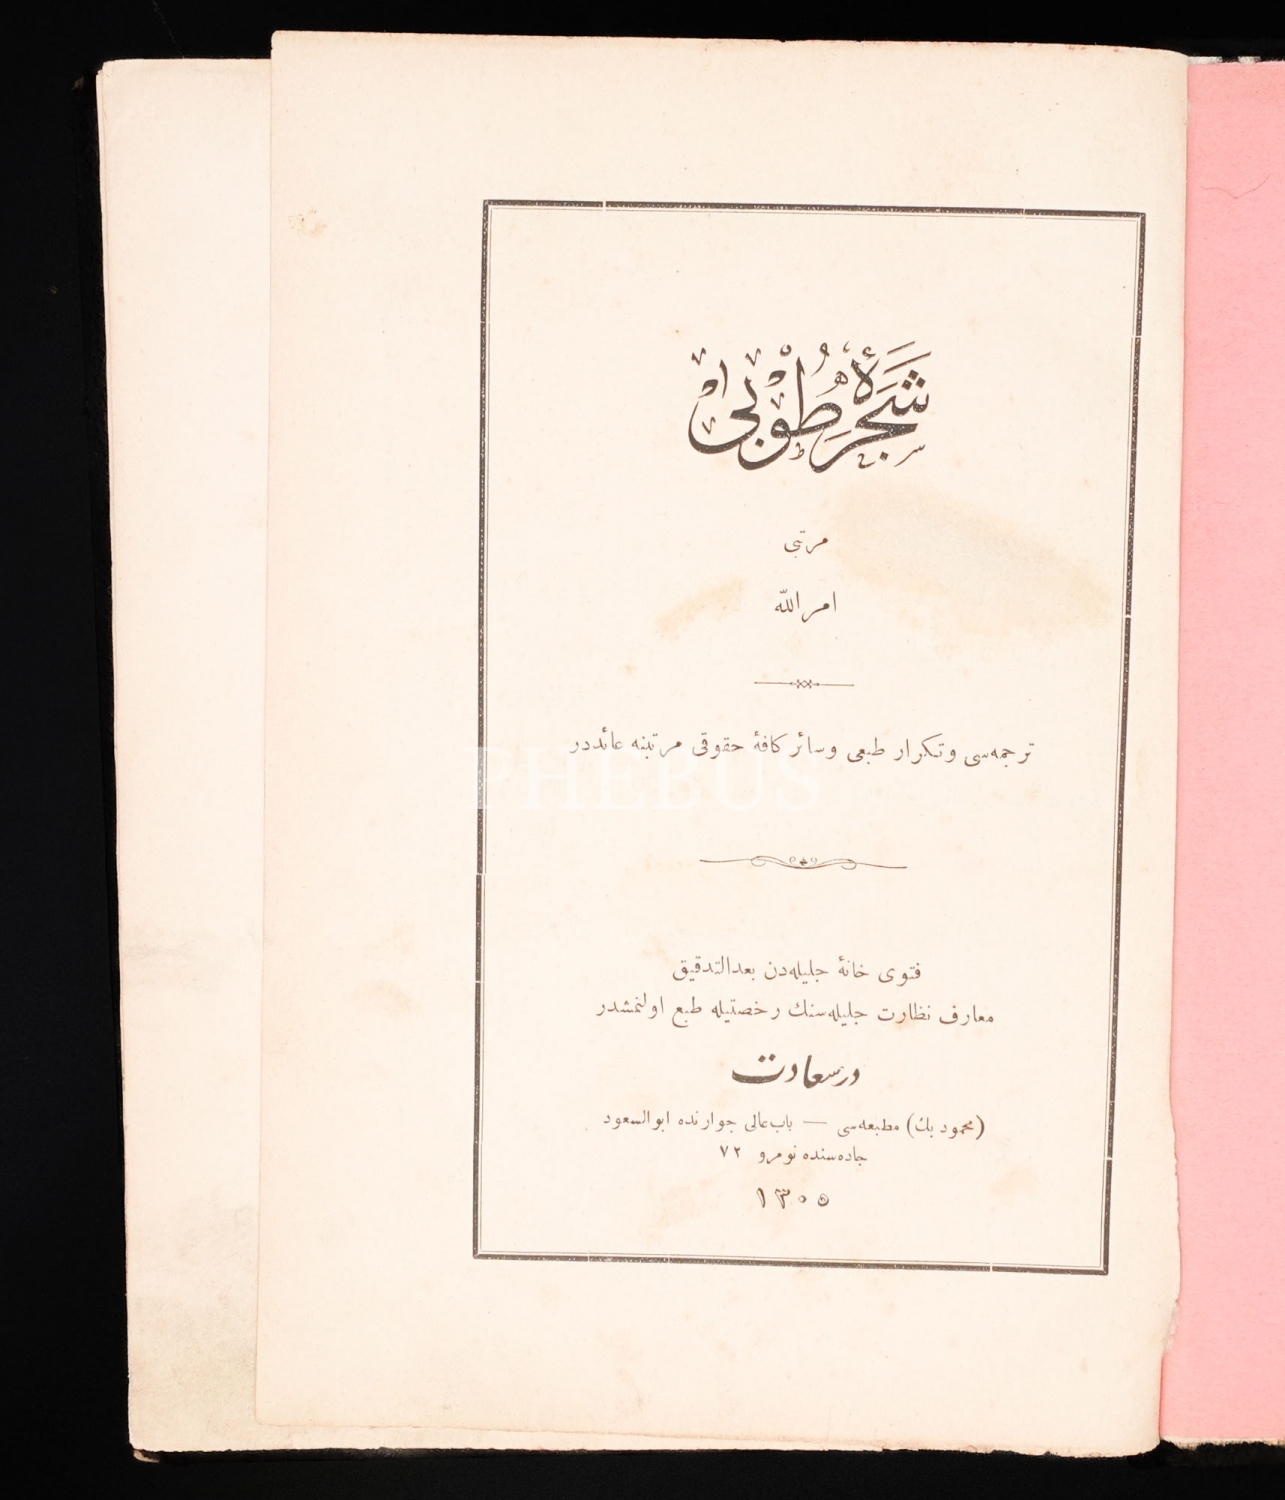 شَجَرَۀ طُوبٰى
مرتبی
امرالله
ترجمه‌سی وتكرار طبعی وسائر كافۀ حقوقی مرتبنه عائددر
PHEBUS
فتوی خانۀ جلیله‌دن بعدالتدقیق
معارف نظارت جلیله‌سنك رخصتیله طبع اولنمشدر
درسعادت
(محمود بك) مطبعه‌سی — باب‌عالی جوارنده ابوالسعود
جاده‌سنده نومرو ۷۲
۱۳۰۵